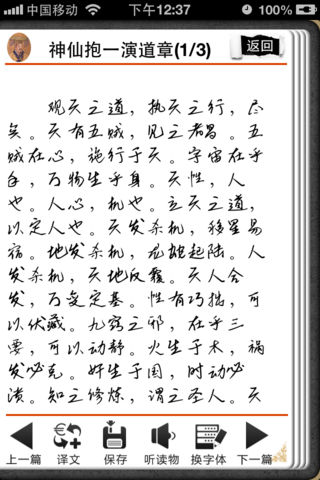 中国移动 下午12:37 100%
神仙抱一演道章(1/3) 返回
观天之道，执天之行，尽
矣。天有五贼，见之者昌。五
贼在心，施行于天。宇宙在乎
手，万物生乎身。天性，人
也。人心，机也。立天之道，
以定人也。天发杀机，移星易
宿。地发杀机，龙蛇起陆。人
发杀机，天地反覆。天人合
发，万变定基。性有巧拙，可
以伏藏。九窍之邪，在乎三
要，可以动静。火生于木，祸
发必克。奸生于国，时动必
溃。知之修炼，谓之圣人。天
上一篇 译文 保存 听读物 换字体 下一篇